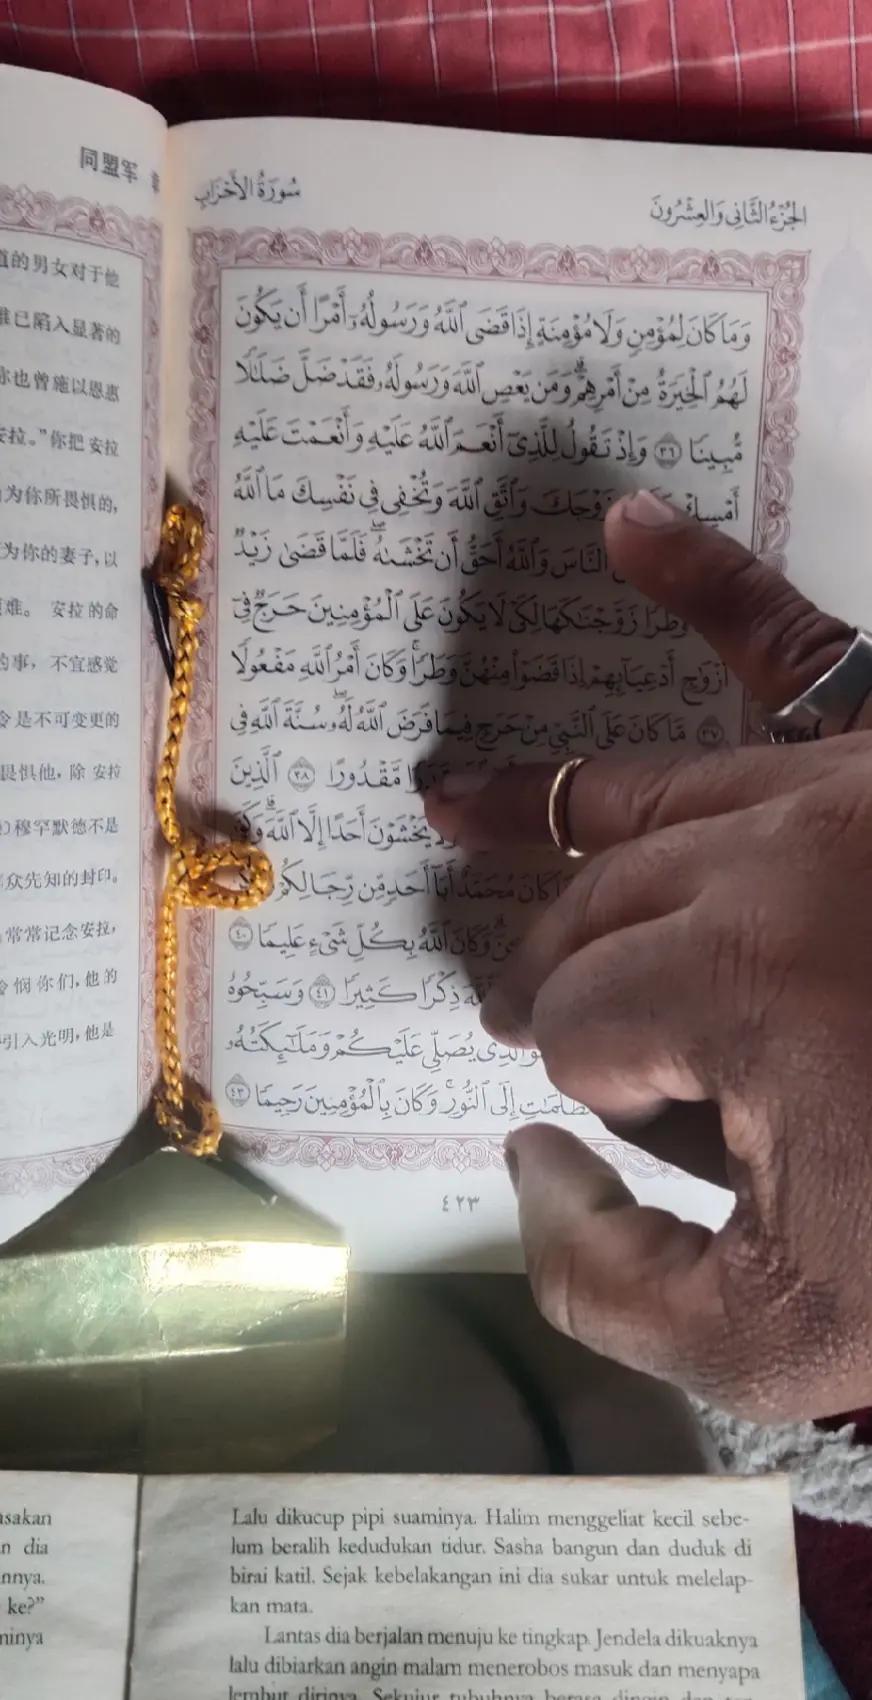 同盟军
道的男女对于他
已陷入显著的
你也曾施以恩惠
安拉。”你把 安拉
为你所畏惧的,
为你的妻子, 以
难。 安拉 的命
的事, 不宜感觉
令是不可变更的
畏惧他, 除 安拉
穆罕默德不是
众先知的封印。
常常记念安拉,
悯你们, 他的
引入光明, 他是
سُورَةُ الأَحْزَابِ
الجُزْءُ الثَّانِي وَالعِشْرُونَ
وَمَا كَانَ لِمُؤْمِنٍ وَلَا مُؤْمِنَةٍ إِذَا قَضَى ٱللَّهُ وَرَسُولُهُۥٓ أَمْرًا أَن يَكُونَ
لَهُمُ ٱلْخِيَرَةُ مِنْ أَمْرِهِمْۗ وَمَن يَعْصِ ٱللَّهَ وَرَسُولَهُۥ فَقَدْ ضَلَّ ضَلَـٰلًا
مُّبِينًا ٣٦ وَإِذْ تَقُولُ لِلَّذِىٓ أَنْعَمَ ٱللَّهُ عَلَيْهِ وَأَنْعَمْتَ عَلَيْهِ
أَمْسِكْ زَوْجَكَ وَٱتَّقِ ٱللَّهَ وَتُخْفِى فِى نَفْسِكَ مَا ٱللَّهُ
ٱلنَّاسَ وَٱللَّهُ أَحَقُّ أَن تَخْشَىٰهُۖ فَلَمَّا قَضَىٰ زَيْدٌ
وَطَرًا زَوَّجْنَـٰكَهَا لِكَىْ لَا يَكُونَ عَلَى ٱلْمُؤْمِنِينَ حَرَجٌ فِىٓ
أَزْوَٰجِ أَدْعِيَآئِهِمْ إِذَا قَضَوْا۟ مِنْهُنَّ وَطَرًاۚ وَكَانَ أَمْرُ ٱللَّهِ مَفْعُولًا
٣٧ مَّا كَانَ عَلَى ٱلنَّبِىِّ مِنْ حَرَجٍ فِيمَا فَرَضَ ٱللَّهُ لَهُۥۖ سُنَّةَ ٱللَّهِ فِى
مَّقْدُورًا ٣٨ ٱلَّذِينَ
وَلَا يَخْشَوْنَ أَحَدًا إِلَّا ٱللَّهَۗ
كَانَ مُحَمَّدٌ أَبَآ أَحَدٍ مِّن رِّجَالِكُمْ
وَكَانَ ٱللَّهُ بِكُلِّ شَىْءٍ عَلِيمًا ٤٠
ذِكْرًا كَثِيرًا ٤١ وَسَبِّحُوهُ
ٱلَّذِى يُصَلِّى عَلَيْكُمْ وَمَلَـٰٓئِكَتُهُۥ
إِلَى ٱلنُّورِۚ وَكَانَ بِٱلْمُؤْمِنِينَ رَحِيمًا ٤٣
٤٢٣
dia
ke?”
Lalu dikucup pipi suaminya. Halim menggeliat kecil sebe-
lum beralih kedudukan tidur. Sasha bangun dan duduk di
birai katil. Sejak kebelakangan ini dia sukar untuk melelap-
kan mata.
Lantas dia berjalan menuju ke tingkap. Jendela dikuaknya
lalu dibiarkan angin malam menerobos masuk dan menyapa
lembut dirinya. Sekujur tubuhnya berasa dingin dan